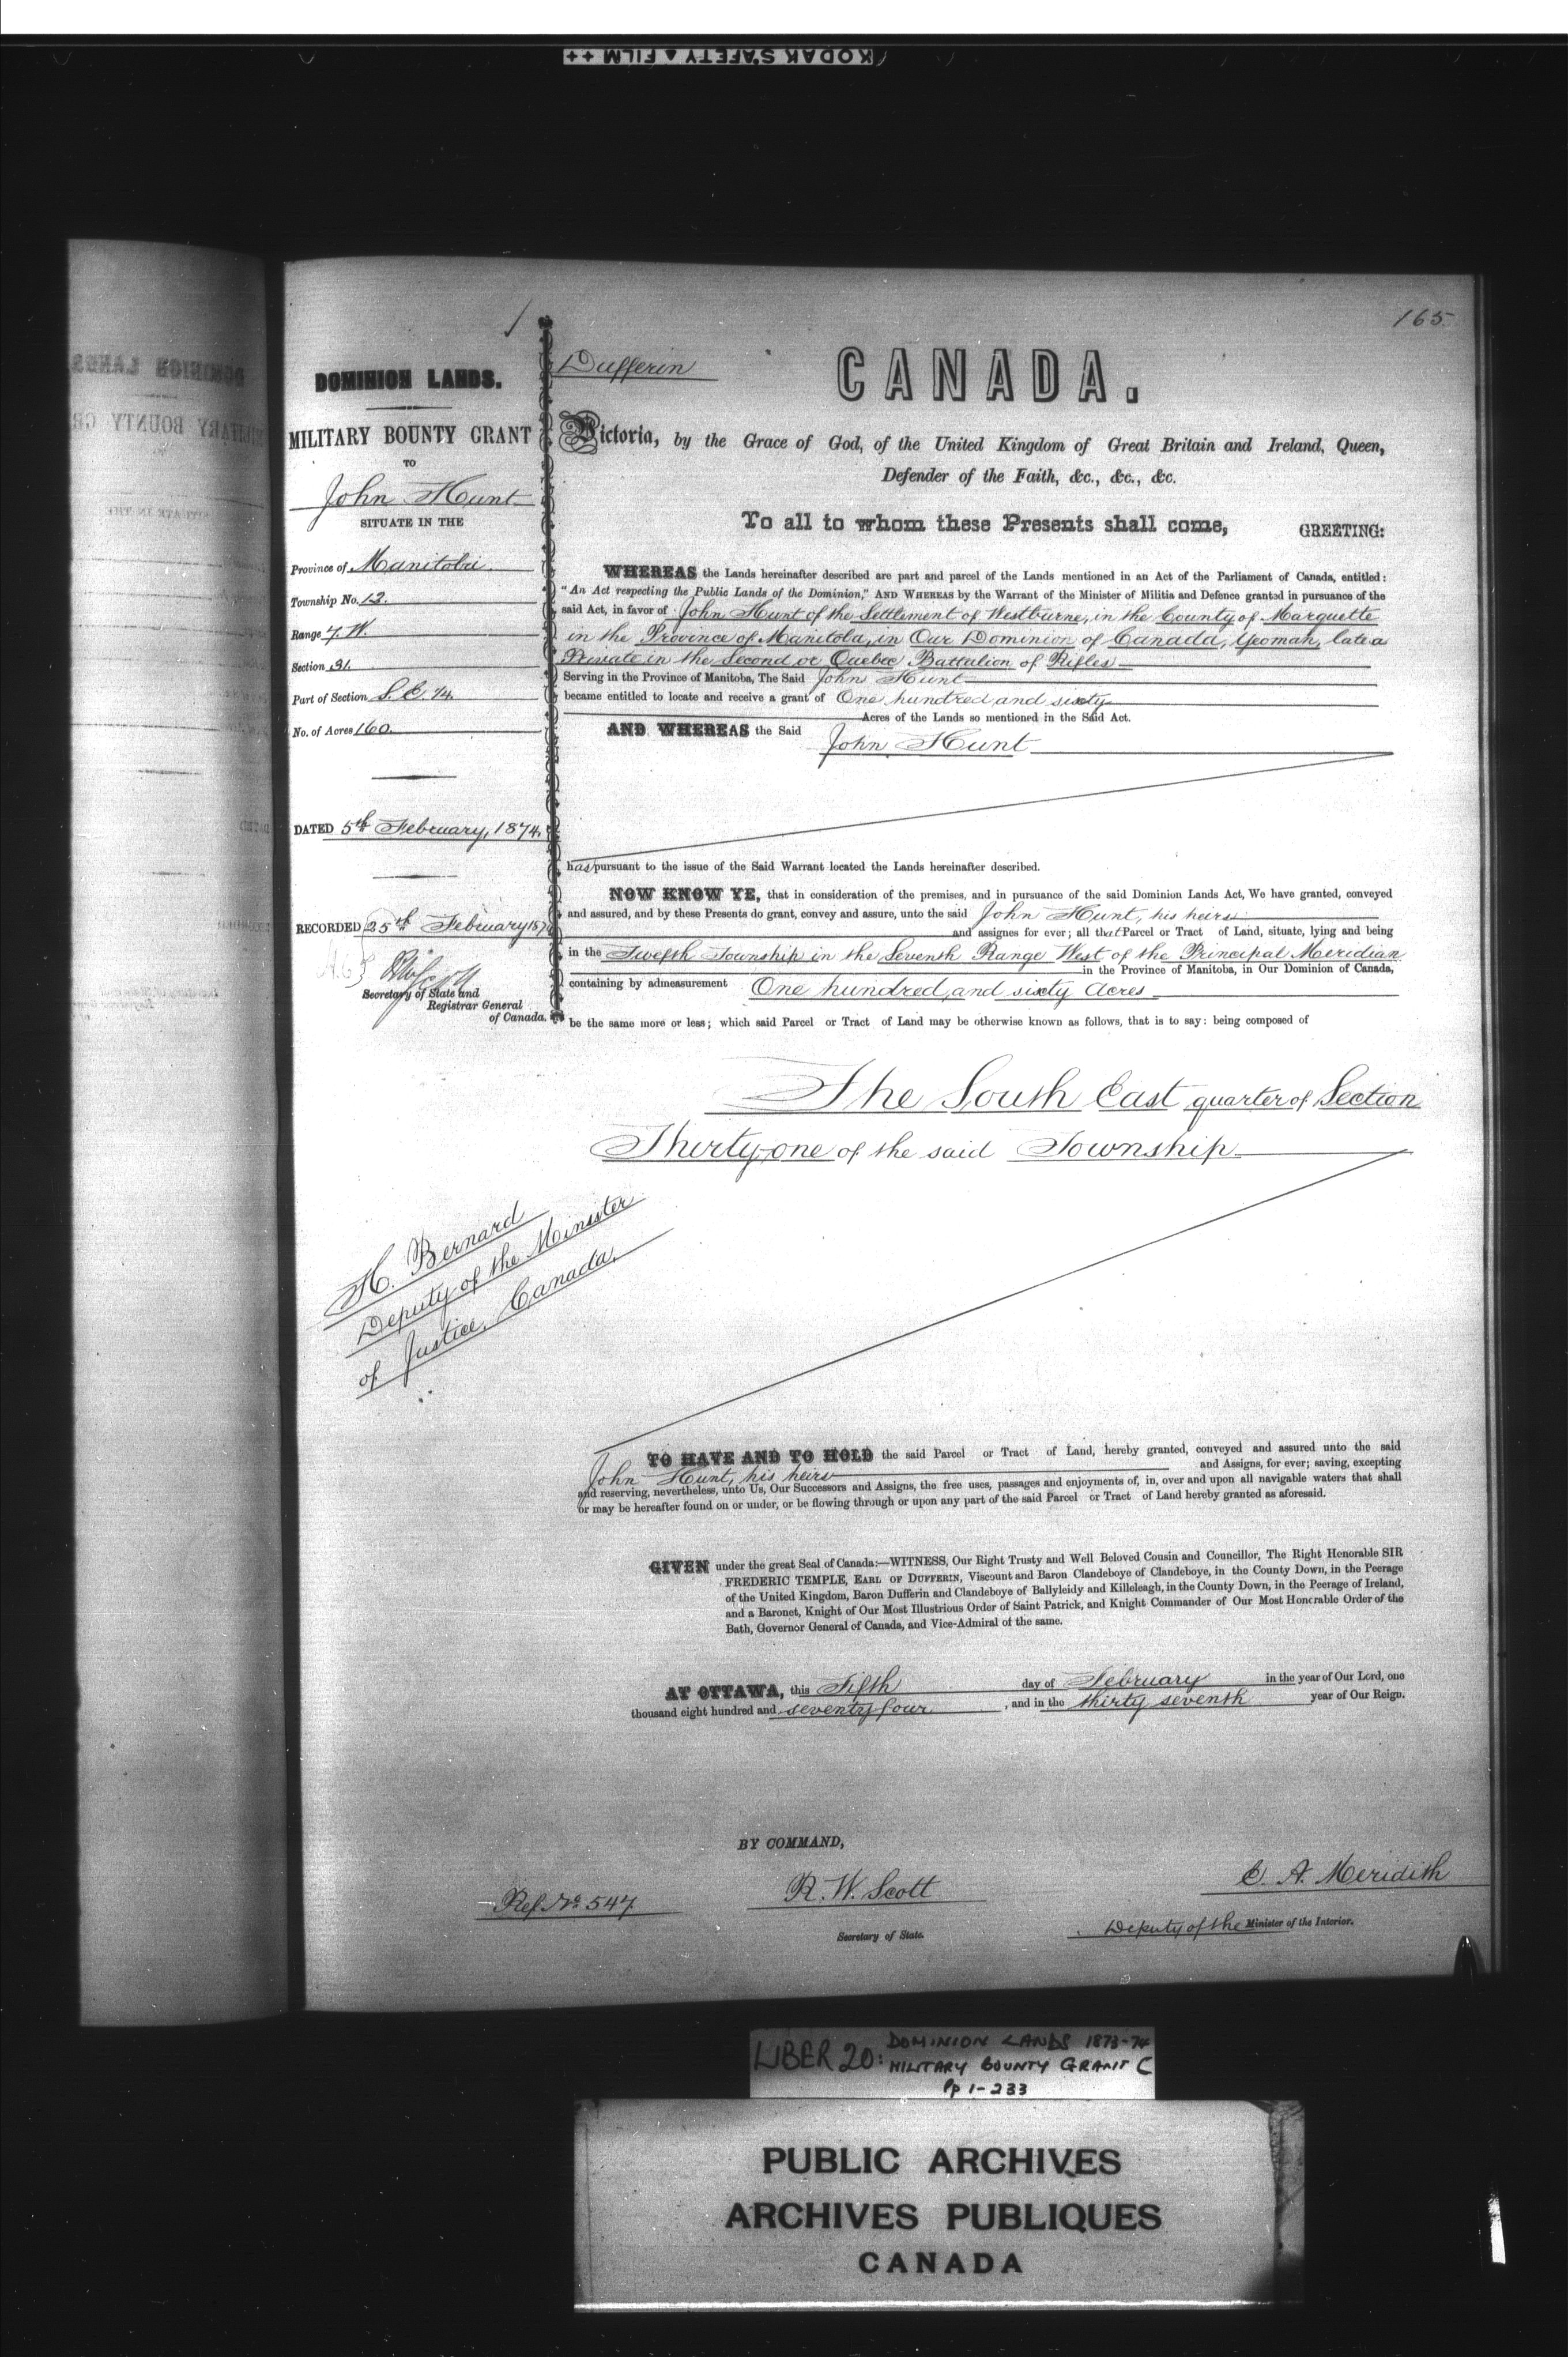 KODAK SAFETY ▲ FILM ++
165
DOMINION LANDS.
MILITARY BOUNTY GRANT
TO
John Hunt
SITUATE IN THE
Province of Manitoba.
Township No. 12.
Range 7. W.
Section 31.
Part of Section S. E. ¼.
No. of Acres 160.
DATED 5th February, 1874.
RECORDED 25th February 187
Secretary of State and
Registrar General
of Canada.
Dufferin
CANADA.
Victoria, by the Grace of God, of the United Kingdom of Great Britain and Ireland, Queen,
Defender of the Faith, &c., &c., &c.
To all to whom these Presents shall come, GREETING:
WHEREAS the Lands hereinafter described are part and parcel of the Lands mentioned in an Act of the Parliament of Canada, entitled:
"An Act respecting the Public Lands of the Dominion," AND WHEREAS by the Warrant of the Minister of Militia and Defence granted in pursuance of the
said Act, in favor of John Hunt of the Settlement of Westburne, in the County of Marquette
in the Province of Manitoba, in Our Dominion of Canada, Yeoman, late a
Private in the Second or Quebec Battalion of Rifles
Serving in the Province of Manitoba, The Said John Hunt
became entitled to locate and receive a grant of One hundred and sixty
Acres of the Lands so mentioned in the Said Act.
AND WHEREAS the Said John Hunt
has pursuant to the issue of the Said Warrant located the Lands hereinafter described.
NOW KNOW YE, that in consideration of the premises, and in pursuance of the said Dominion Lands Act, We have granted, conveyed
and assured, and by these Presents do grant, convey and assure, unto the said John Hunt, his heirs
and assignes for ever; all that Parcel or Tract of Land, situate, lying and being
in the Twelfth Township in the Seventh Range West of the Principal Meridian
in the Province of Manitoba, in Our Dominion of Canada,
containing by admeasurement One hundred and sixty Acres
be the same more or less; which said Parcel or Tract of Land may be otherwise known as follows, that is to say: being composed of
The South East quarter of Section
Thirty-one of the said Township
H. Bernard
Deputy of the Minister
of Justice, Canada.
TO HAVE AND TO HOLD the said Parcel or Tract of Land, hereby granted, conveyed and assured unto the said
John Hunt, his heirs and Assigns, for ever; saving, excepting
and reserving, nevertheless, unto Us, Our Successors and Assigns, the free uses, passages and enjoyments of, in, over and upon all navigable waters that shall
or may be hereafter found on or under, or be flowing through or upon any part of the said Parcel or Tract of Land hereby granted as aforesaid.
GIVEN under the great Seal of Canada:—WITNESS, Our Right Trusty and Well Beloved Cousin and Councillor, The Right Honorable SIR
FREDERIC TEMPLE, EARL OF DUFFERIN, Viscount and Baron Clandeboye of Clandeboye, in the County Down, in the Peerage
of the United Kingdom, Baron Dufferin and Clandeboye of Ballyleidy and Killeleagh, in the County Down, in the Peerage of Ireland,
and a Baronet, Knight of Our Most Illustrious Order of Saint Patrick, and Knight Commander of Our Most Honorable Order of the
Bath, Governor General of Canada, and Vice-Admiral of the same.
AT OTTAWA, this Fifth day of February in the year of Our Lord, one
thousand eight hundred and seventy four, and in the thirty seventh year of Our Reign.
BY COMMAND,
Ref. No 547
R. W. Scott
Secretary of State.
E. A. Meridith
Deputy of the Minister of the Interior.
LIBER 20: DOMINION LANDS 1873-74
MILITARY BOUNTY GRANT C
Pp 1-233
PUBLIC ARCHIVES
ARCHIVES PUBLIQUES
CANADA